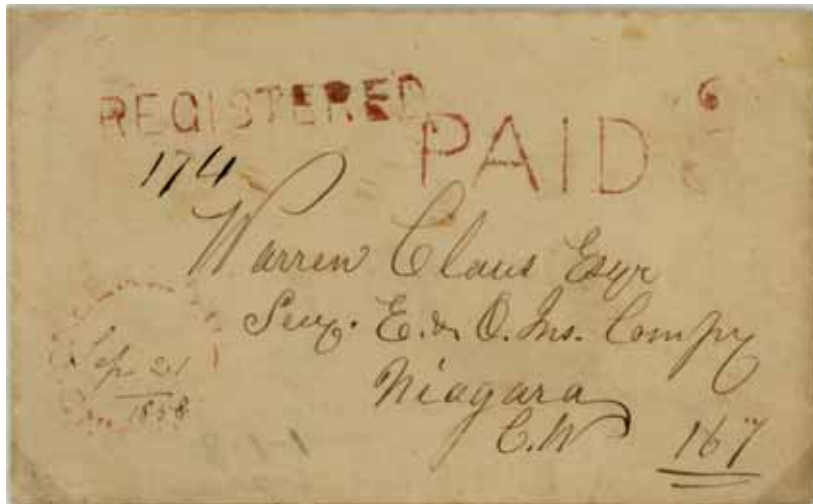 REGISTERED
PAID 6
174
Warren Claus Esqr
Secy. E. & O. Ins. Compy
Niagara
C.W
167
Sep 21
1858